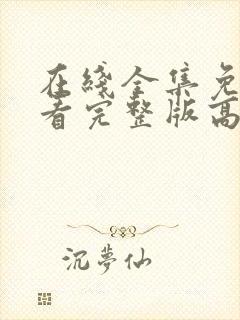 在綫全集免
看完整版高
沉夢仙